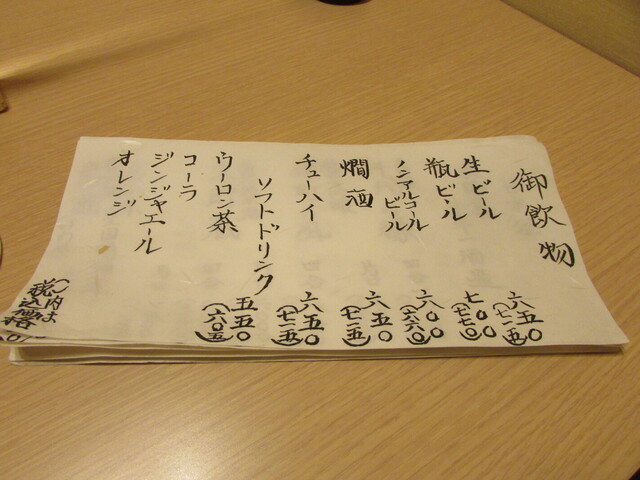 御飲物
生ビール 六五〇 (七一五)
瓶ビール 七〇〇 (七七〇)
ノンアルコールビール 六〇〇 (六六〇)
燗酒 六五〇 (七一五)
チューハイ 六五〇 (七一五)
ソフトドリンク 五五〇 (六〇五)
ウーロン茶
コーラ
ジンジャエール
オレンジ
()内は
税込価格